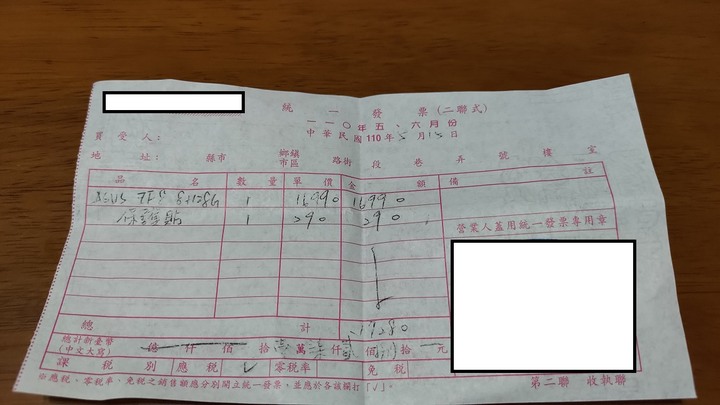 統一發票(二聯式)
一一〇年五、六月份
中華民國110年5月15日
買受人：
地址： 縣市 鄉鎮市區 路街 段 巷 弄 號 樓 室
品名 數量 單價 金額 備註
ASUS ZF 8 1 16990 16990
保護貼 1 290 290
營業人蓋用統一發票專用章
總計 17280
總計新臺幣(中文大寫) 億 仟 佰 拾 萬 仟 佰 拾 元
課稅別 應稅 ✓ 零稅率 免稅
※應稅、零稅率、免稅之銷售額應分別開立統一發票，並應於各該欄打「V」。
第二聯 收執聯